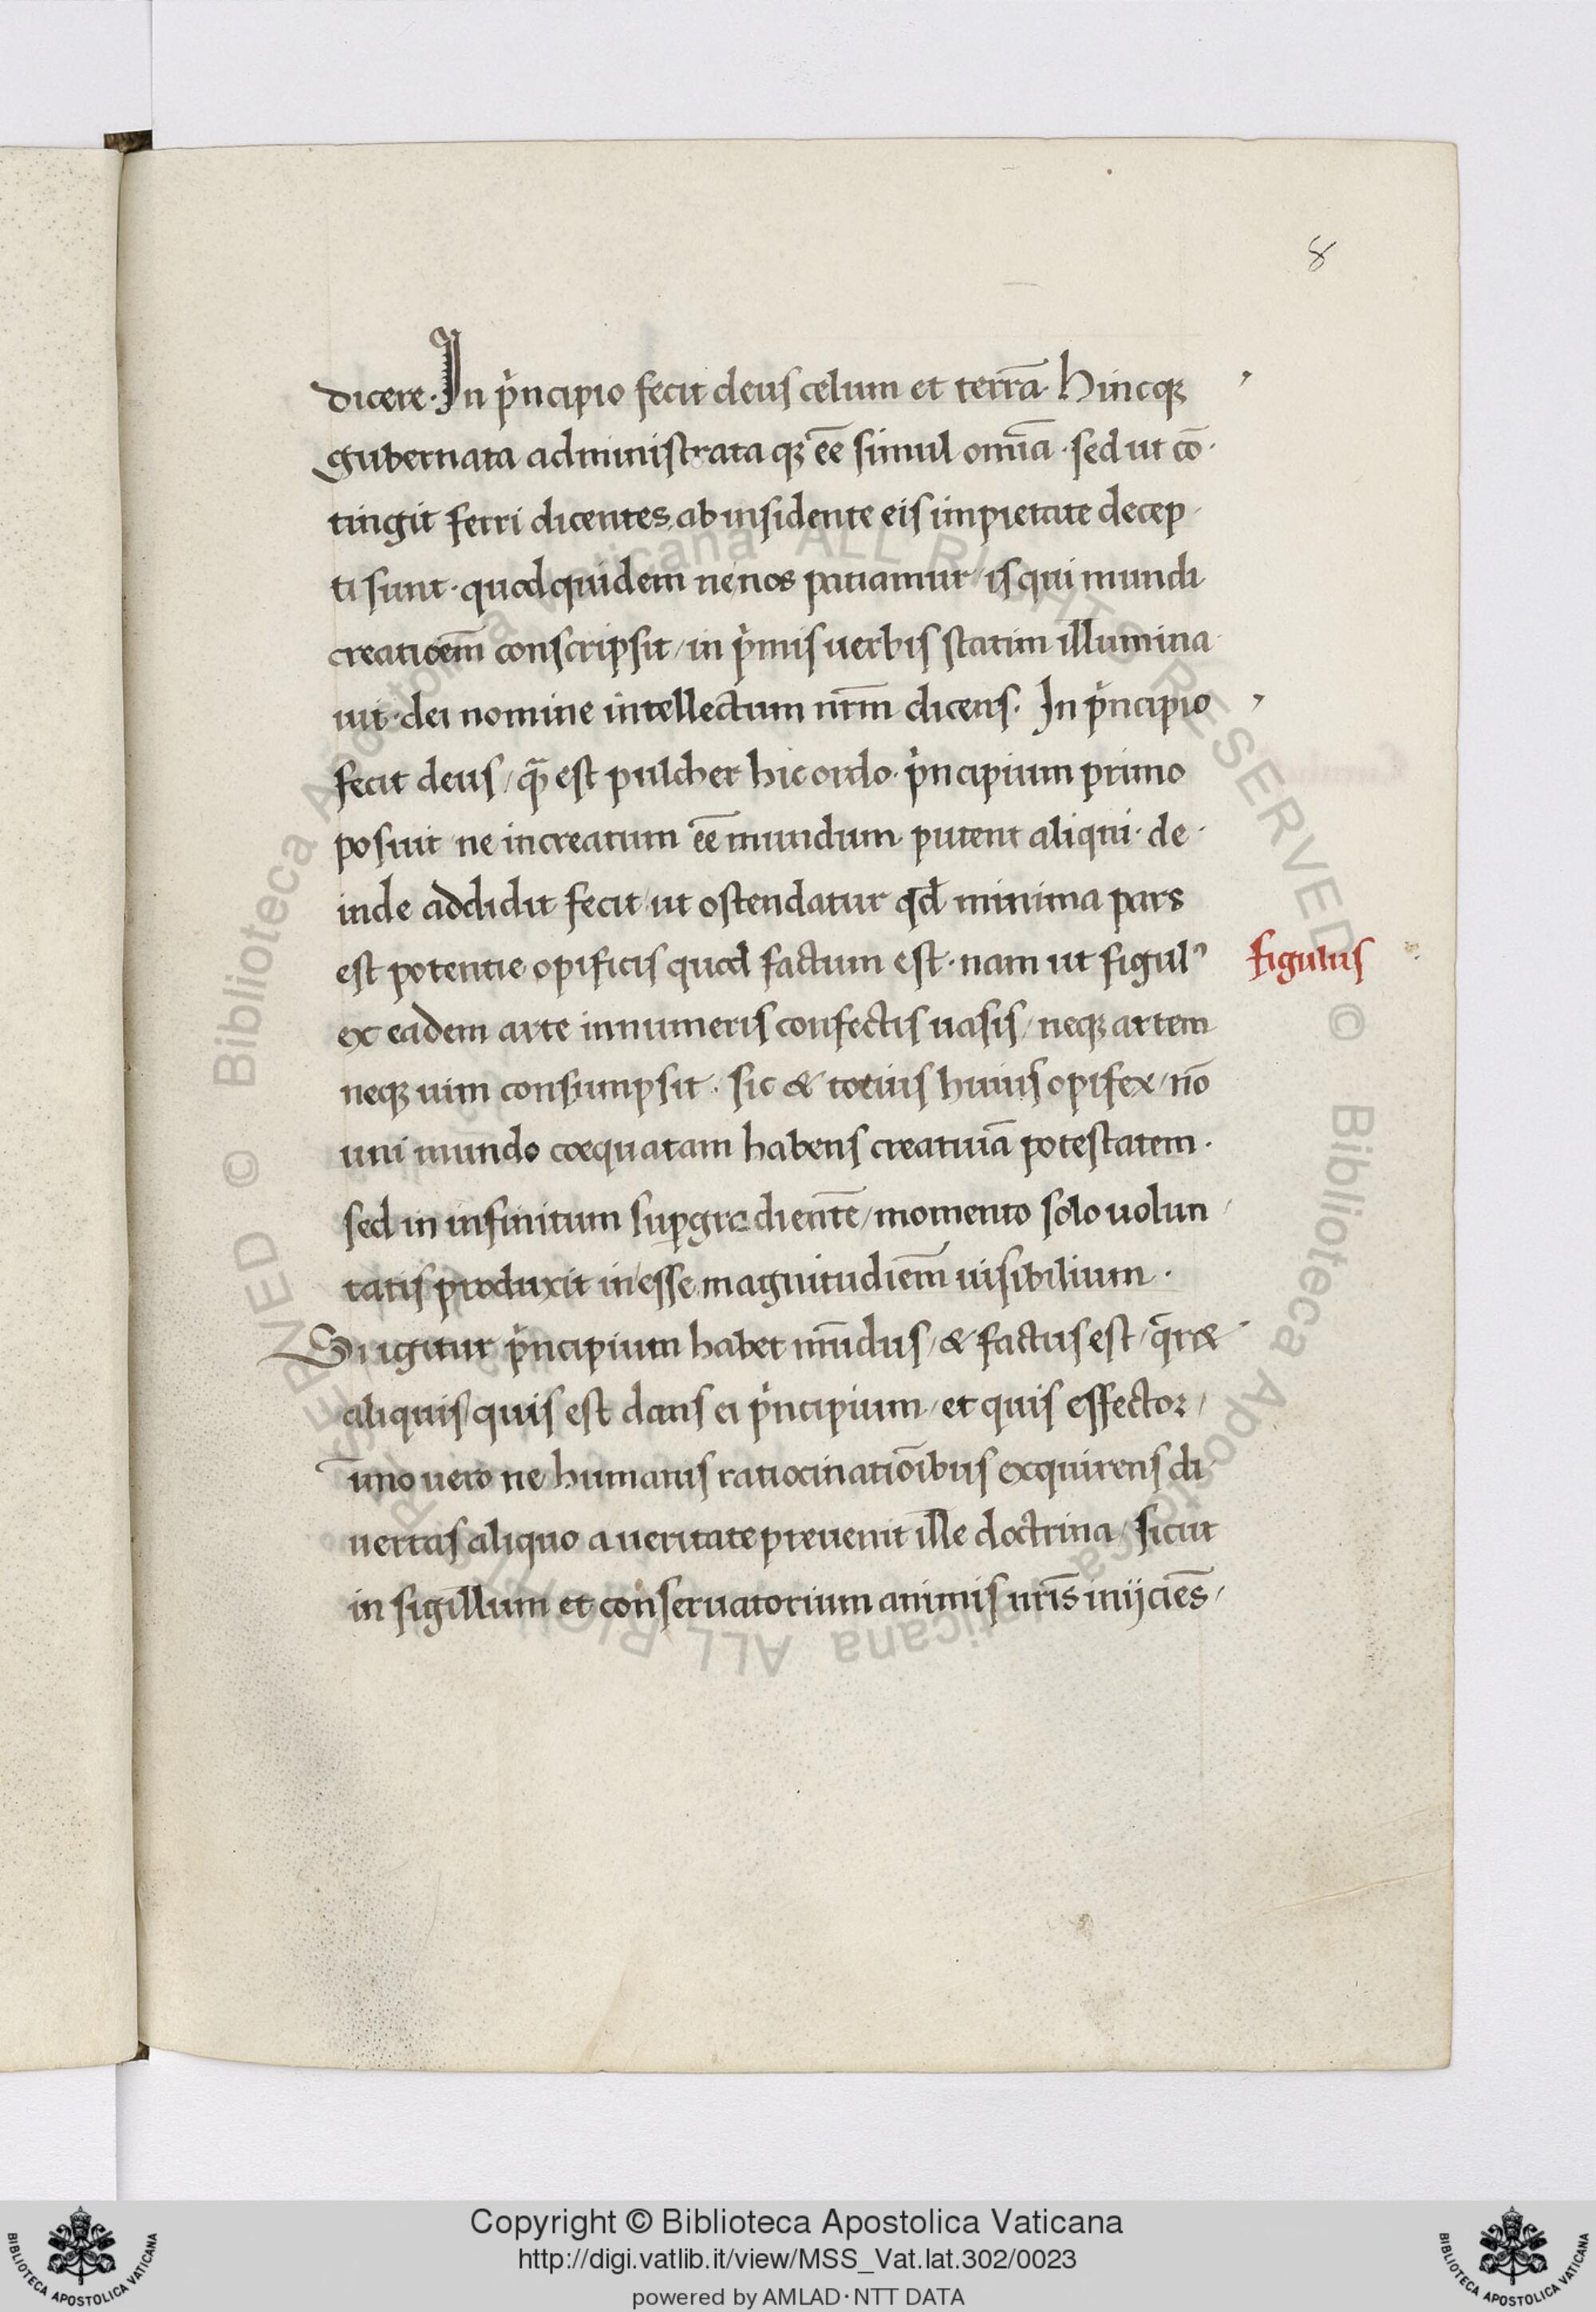 8
dicere · In p̍ncipio fecit deus celum et terrā · Hincqꝫ
gubernata administrataqꝫ eē simul omīa · sed ut cō·
tingit ferri dicentes, ab insidente eis impietate decep·
ti sunt · quod quidem ne nos patiamur / is qui mundi
creatioēm conscripsit / in p̍mis uerbis statim illumina·
uit · dei nomine intellectum nr̄m dicens · In p̍ncipio
fecit deus / qᷓ est pulcher hic ordo · p̍ncipium primo
posuit ne increatum eē mundum putent aliqui · de·
inde addidit fecit / ut ostendatur qd̄ minima pars
est potentie opificis quod factum est · nam ut figulꝰ
figulus
ex eadem arte innumeris confectis uasis / neqꝫ artem
neqꝫ uim consumpsit · sic & totius huius opifex / nō
uni mundo coequatam habens creatiuā potestatem ·
sed in infinitum suꝑgredientē / momento solo uolun /
tatis produxit in esse magnitudiēm uisibilium ·
Si igitur p̍ncipium habet mūdus / & factus est / qᷓr&
aliquis / quis est dans ei p̍ncipium / et quis effector /
īmo uero ne humanis ratiocinatiōibus exquirens di·
uertas aliquo a ueritate preuenit ille doctrina / sicut
in sigillum et conseruatorium animis nr̄is inijciēs /
Copyright © Biblioteca Apostolica Vaticana
http://digi.vatlib.it/view/MSS_Vat.lat.302/0023
powered by AMLAD·NTT DATA